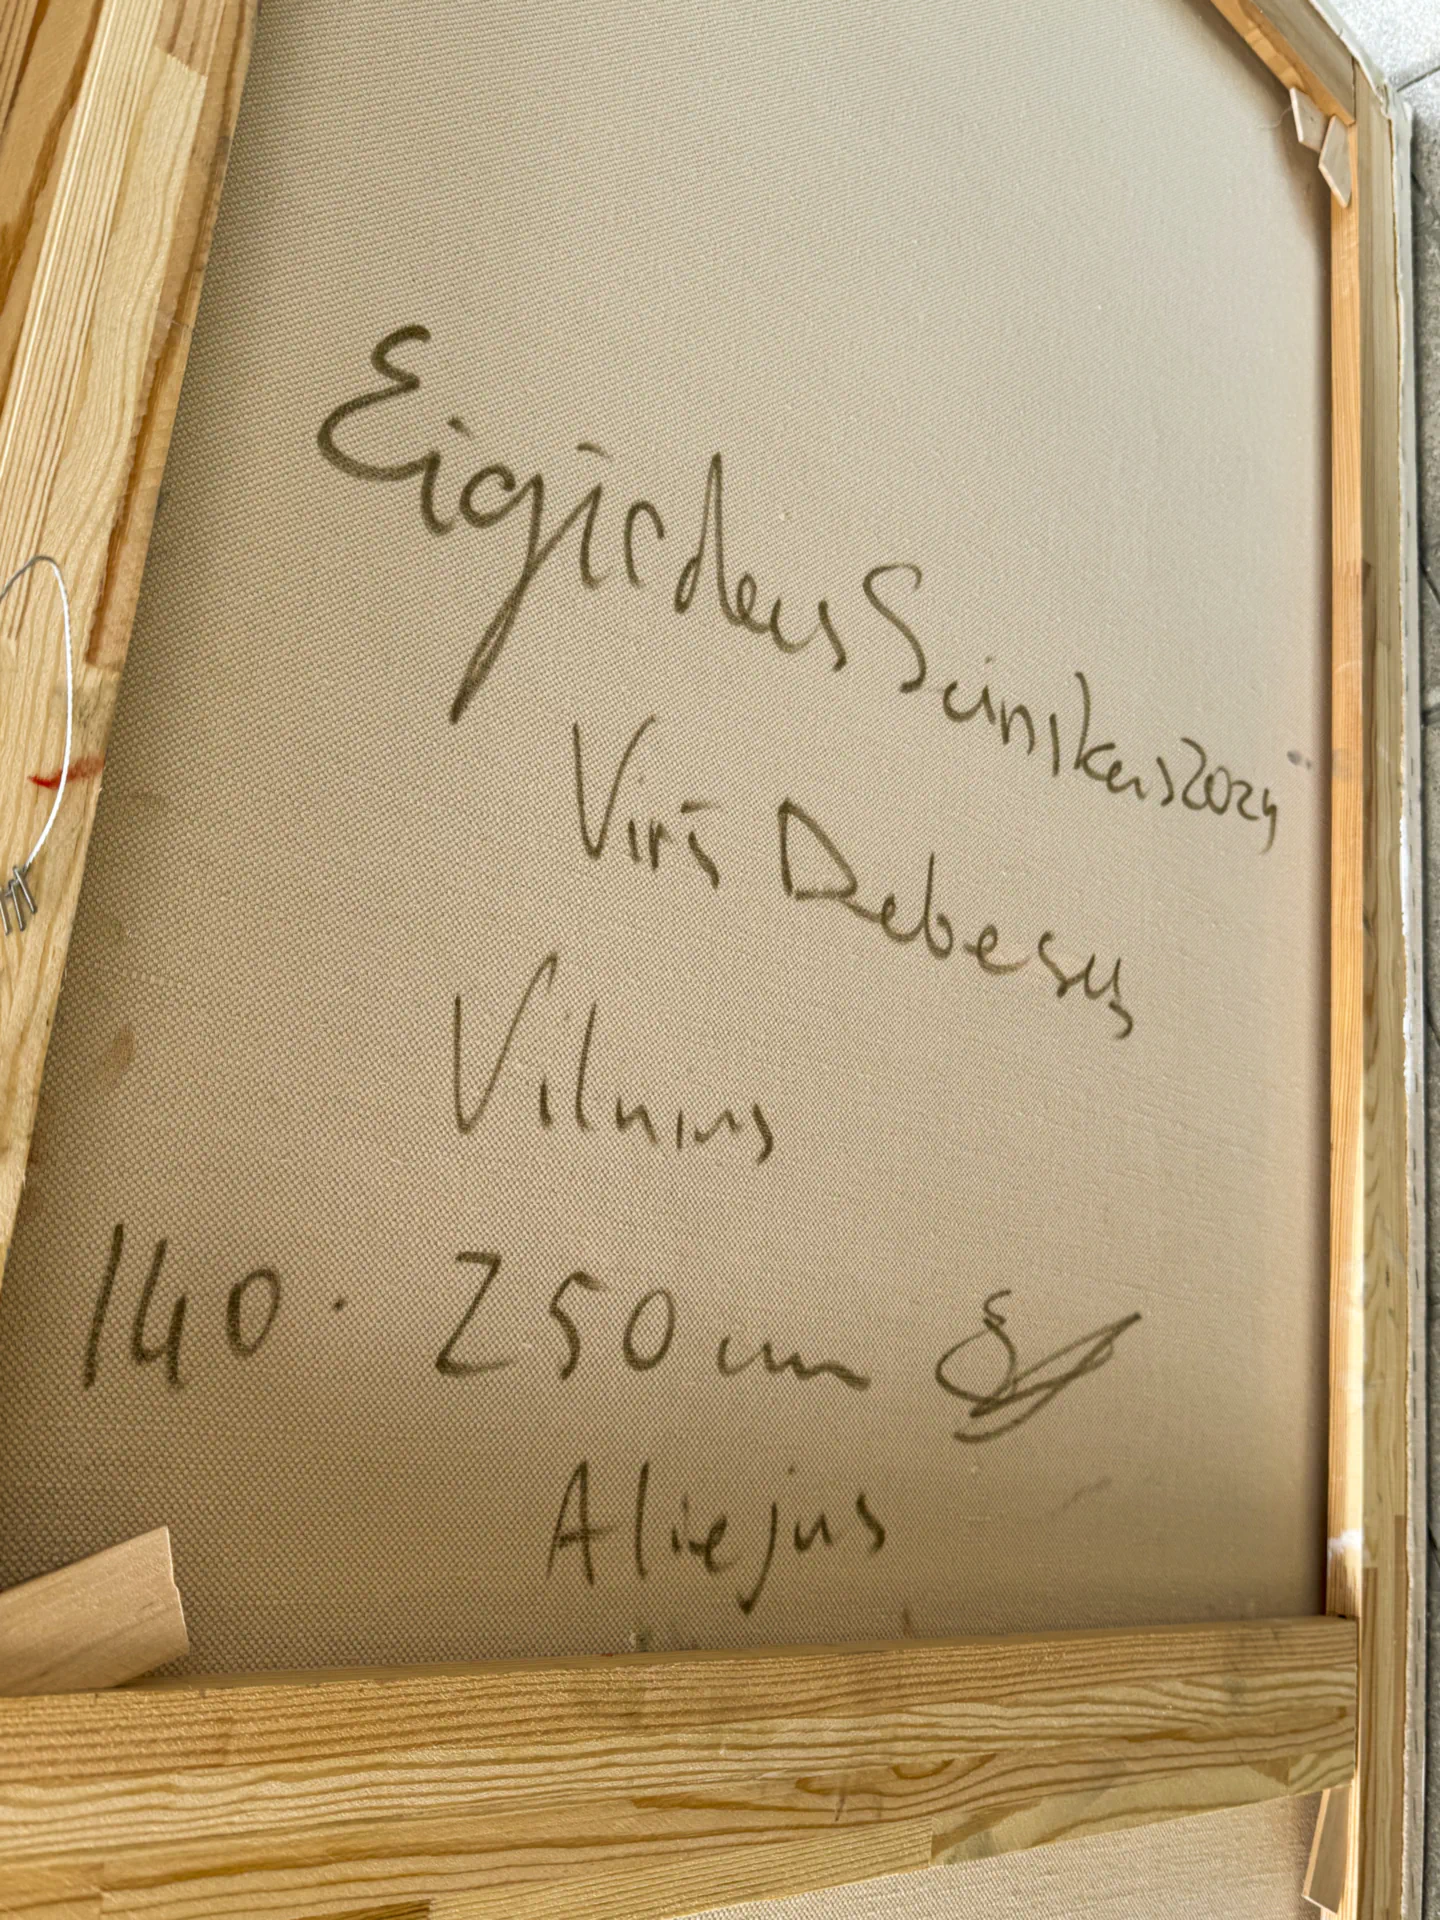 Eigirdas Scinskas 2024
Virš Debesų
Vilnius
140 · 250 cm
Aliejus